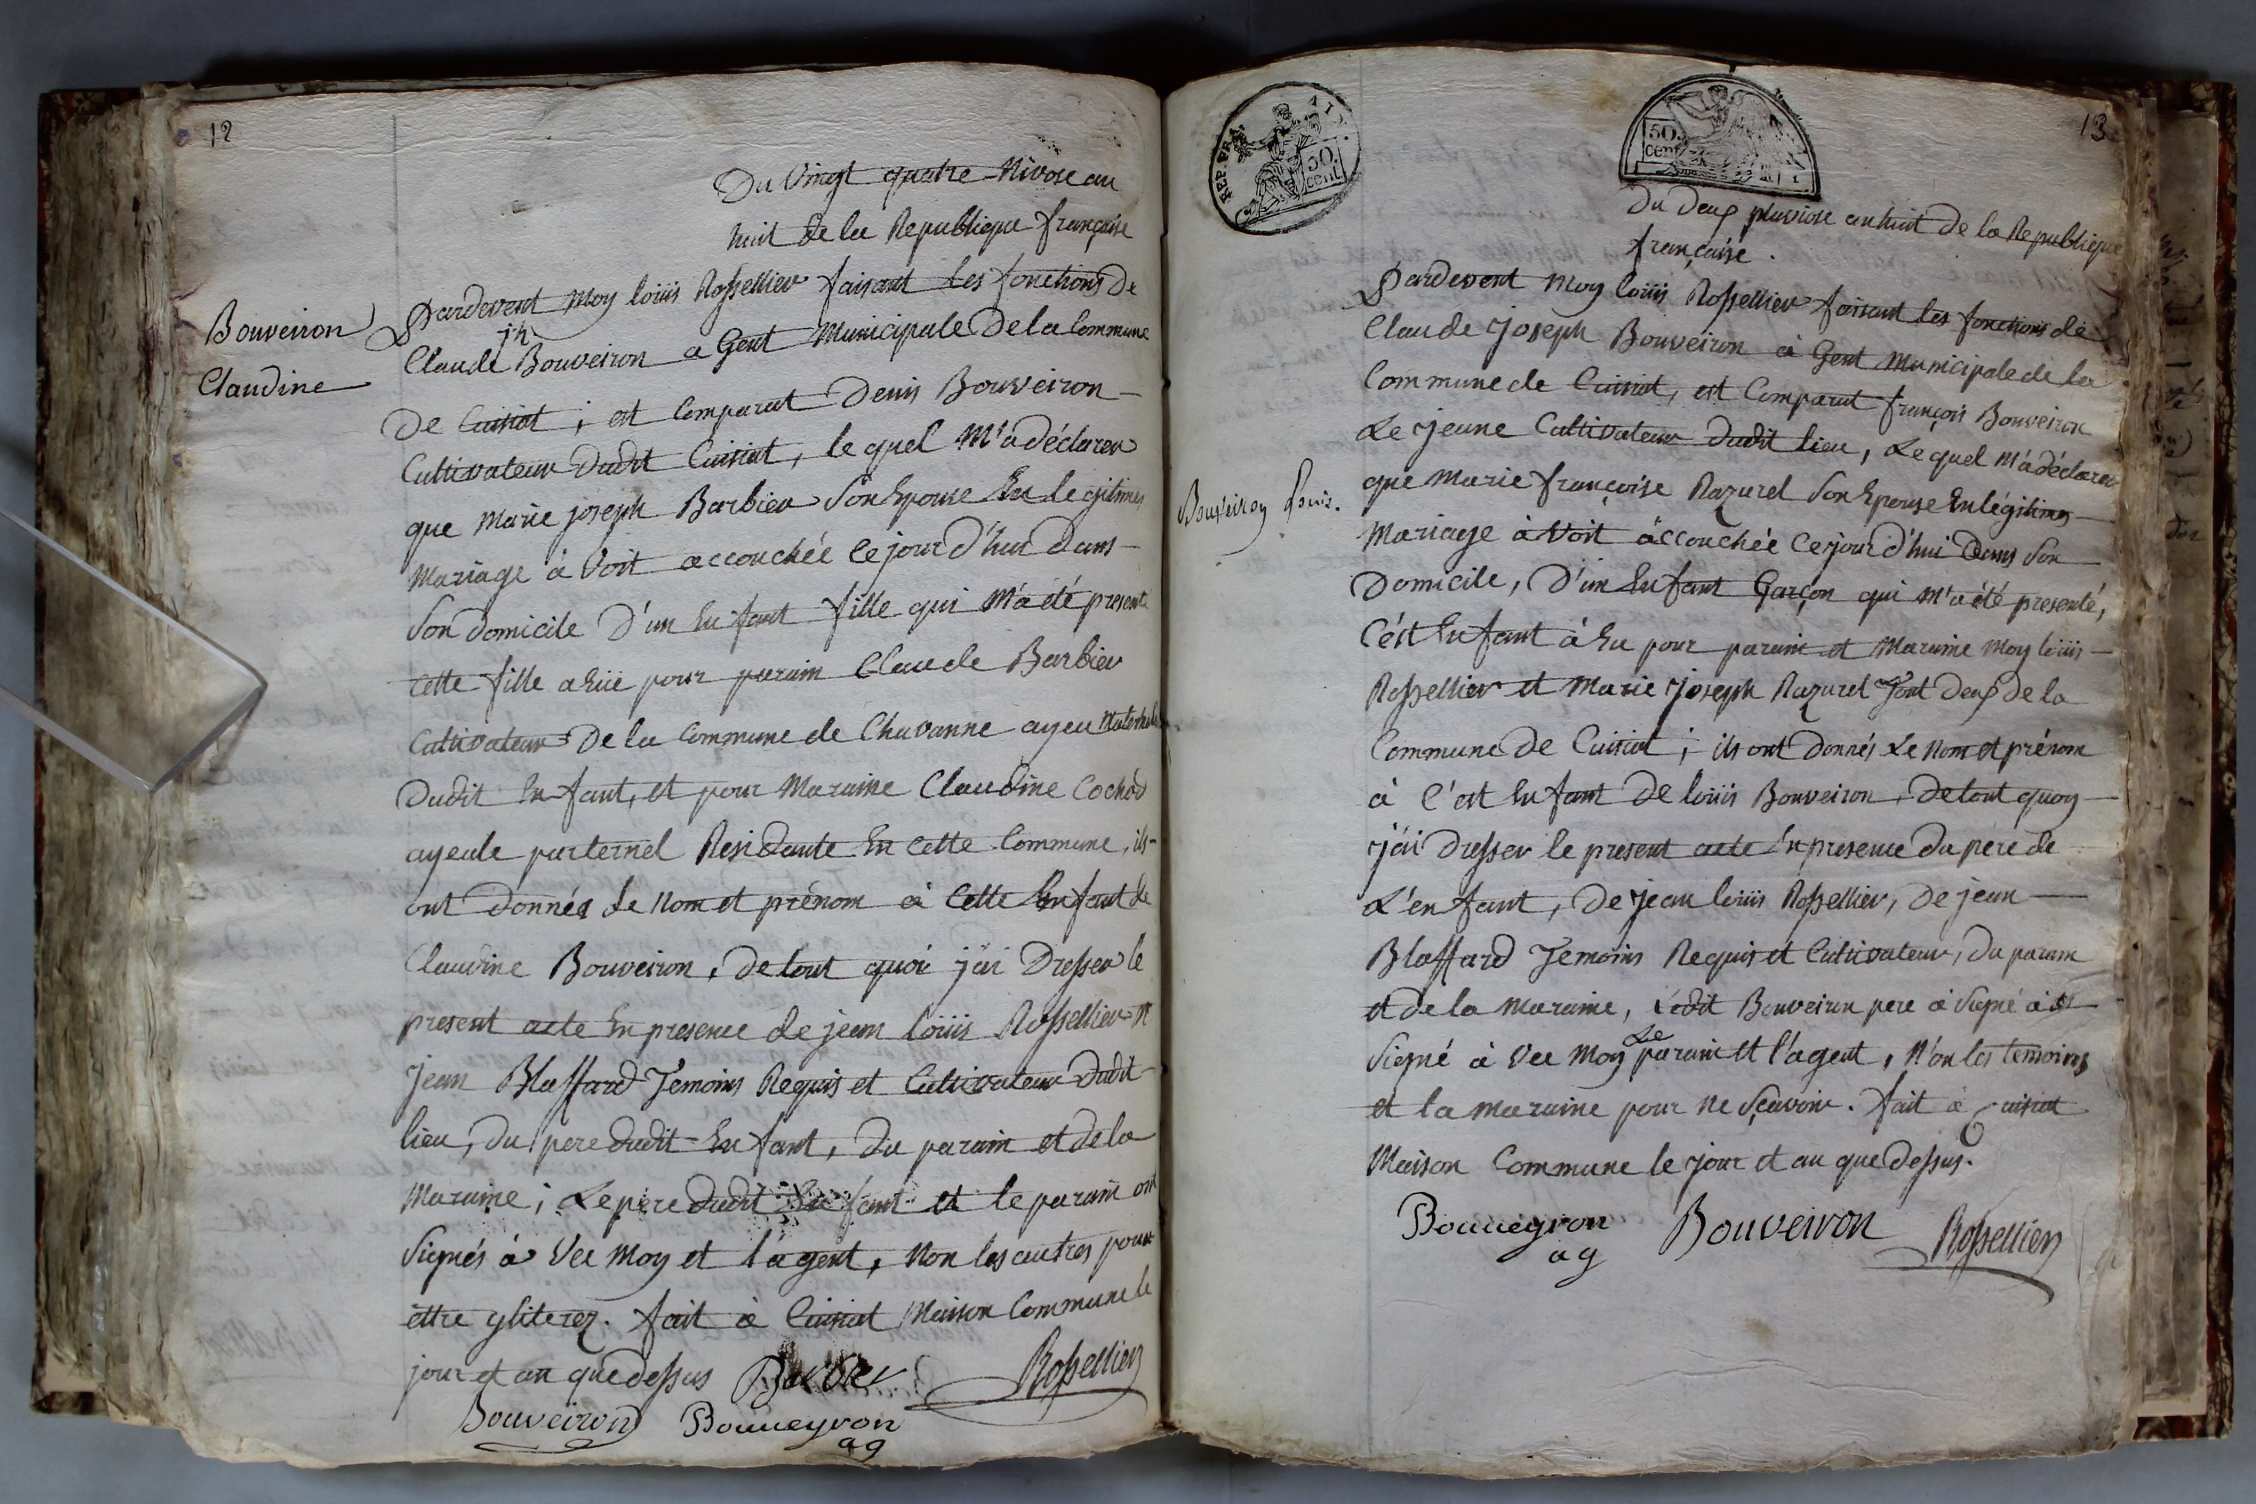 12
Du vingt quatre Nivose an
huit de la Republique française
Bouveiron
Claudine
Pardevent Moy loüis Rossellier faisant les fonctions de
jh
Claude Bouveiron a Gent Municipale de la Commune
De Cuisiat ; est Comparut Denis Bouveiron
Cultivateur Dudit Cuisiat, le quel M'a déclarer
que Marie joseph Barbier Son Epouse En legitimes
Mariage à Voit accouchée Ce jour d'hui dans
Son domicile D'un En fant fille qui M'a été presenté
Cette fille a Eüe pour parain Claude Barbier
Cultivateur De la Commune de Chavanne ayeu Maternel
Dudit En fant, et pour Maraine Claudine Cochod
ayeule paternel Residante En Cette Commune, ils
ont donnés le Nom et prénom à Cette Enfant de
Claudine Bouveiron, de tout quoi j'ai Dresser le
present acte En presence de jean loüis Rossellier
jean Blaffard Temoins Requis et Cultivateur Dudit
lieu, Du pere dudit En fant, Du parain et de la
Maraine ; Le pere dudit En fant et le parain ont
Signés à Vec Moy et l'agent, Non les autres pour
ettre yliterez. fait à Cuisiat Maison Commune le
jour et an que dessus Barbier Rossellier
Bouveiron Bouueyron
ag
REP. FRA
50.
cent
50.
cent
13
Du deux pluviose an huit de la Republique
française.
Pardevent Moy loüis Rossellier faisant les fonctions de
Claude Joseph Bouveiron à Gent Municipale de la
Commune de Cuisiat, est Comparut françois Bouveiron
Le Jeune Cultivateur Dudit lieu, Le quel M'a déclarer
que Marie françoise Razurel Son Epouse En légitimes
Bouveiron Louis.
Mariage à Voit accouchée Ce jour d'hui Dans Son
Domicile, D'un En fant Garçon qui M'a été presenté,
C'ést En fant à Eu pour parain et Maraine Moy loüis
Rossellier et Marie Joseph Razurel Tout deux de la
Commune de Cuisiat ; ils ont donnés Le Nom et prénom
à C'est En fant de loüis Bouveiron, de tout quoy
j'ai Dresser le present acte En presence du pere de
L'en fant, De Jean loüis Rossellier, De jean
Blaffard Temoins Requis et Cultivateur, du parain
et de la Maraine, Ledit Bouveiron pere à Signé
Le
Signé à Vec Moy parain et l'agent, N'on les temoins
et la Maraine pour Ne Sçavoir. fait à Cuisiat
Maison Commune le jour et an que dessus.
Bouueyron Bouveiron Rossellier
ag